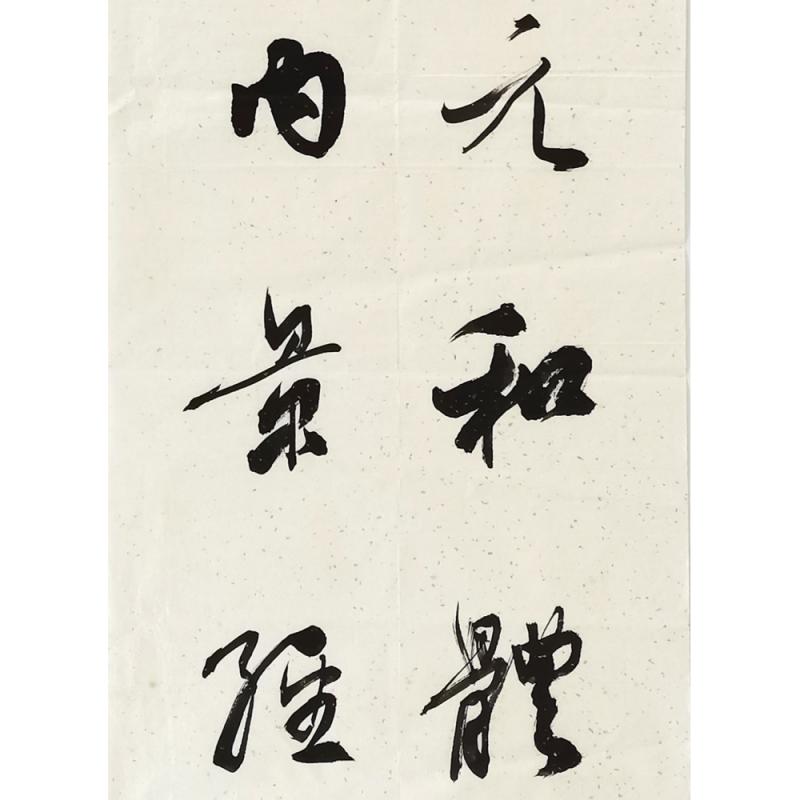 元和體
内景經